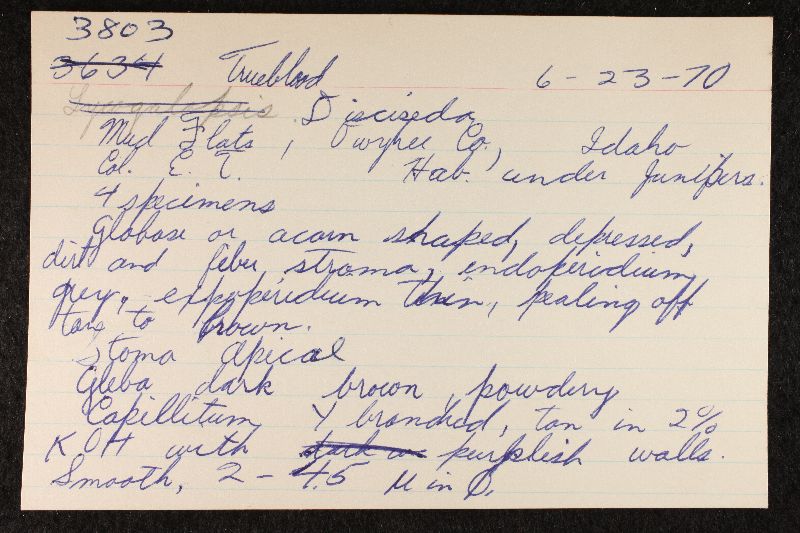 3803
3634 Trueblood 6-23-70
Disciseda
Mud Flats, Owyhee Co., Idaho
Col. E. T. Hab. under Junipers.
4 specimens
Globose or acorn shaped, depressed,
dirt and fiber stroma, endoperidium
grey, expoperidium thin, pealing off
tan to brown.
Stoma apical
Gleba dark brown, powdery
Capillitum Y branched, tan in 2%
KOH with dark purplish walls.
Smooth, 2-4.5 µ in D.